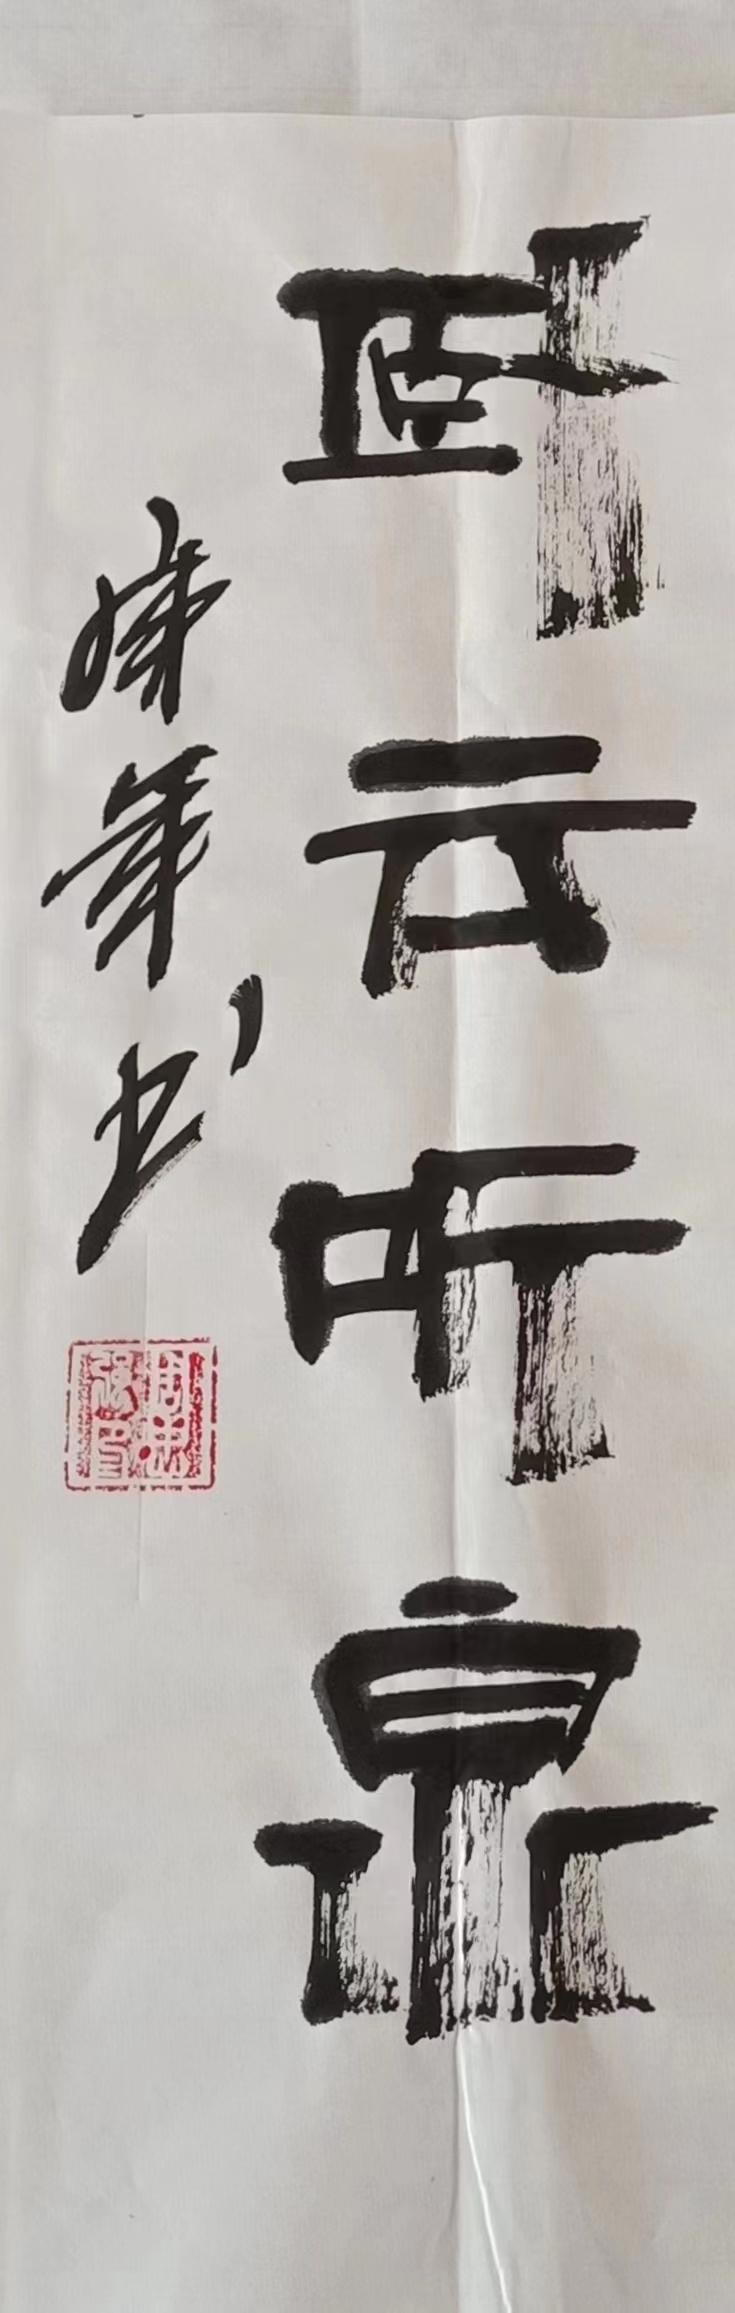 卧云听泉
年书